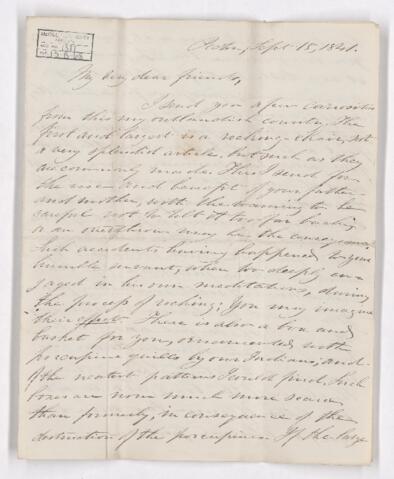 Acton, Sept 15, 1841.
My very dear friends,
I send you a few curiosities
from this my outlandish country. The
first and largest is a rocking-chair, not
a very splendid article, but such as they
are commonly made. This I send for
the use and benefit of your father
and mother, with the warning to be
careful not to tilt it too far back,
as an overthrow may be the consequence.
Such accidents having happened to your
humble servant, when too deeply en-
gaged in his own meditations, during
the process of rocking; You may imagine
their effect. There is also a box and
basket for you, ornamented with
porcupine quills by our Indians, and
of the neatest patterns I could find. Such
boxes are now much more scarce
than formerly, in consequence of the
destruction of the porcupines. If the large